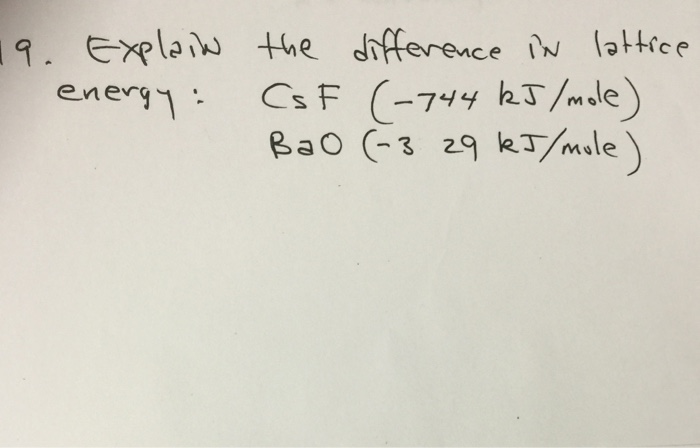 19. Explain the difference in lattice
energy: CsF (-744 kJ/mole)
BaO (-3 29 kJ/mole)